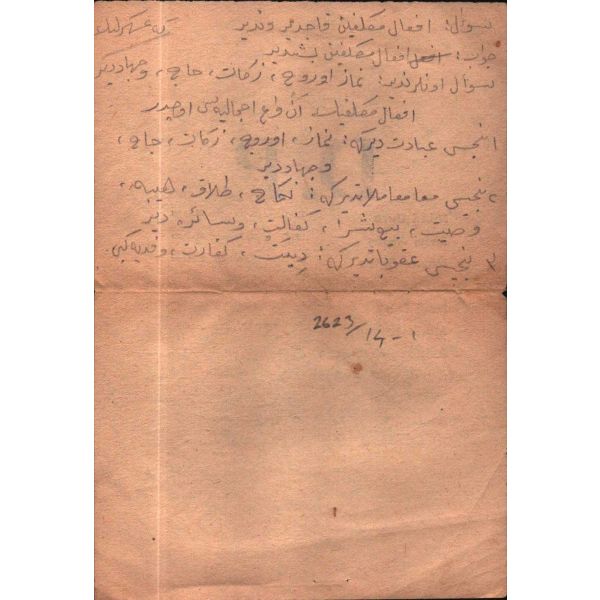 سؤال: افعال مكلفين قاچدر و ندير
جواب: افعال مكلفين بشديد
سؤال اونلر ندير: نماز اوروج، زكات، حاج، و جهاددير
افعال مكلفينك انواع اجماليه سى اوچدر
١ نجيسى عبادت ديركه: نماز، اوروج، زكات، حاج،
و جهاددير
٢ نجيسى معاملاتدير كه: نكاح، طلاق، هيبه،
وصيت، بيع شرا، كفالت، و سائره دير
٣ نجيسى عقوباتدير كه: ديت، كفارت، و فديه كبى.
2623/14-1